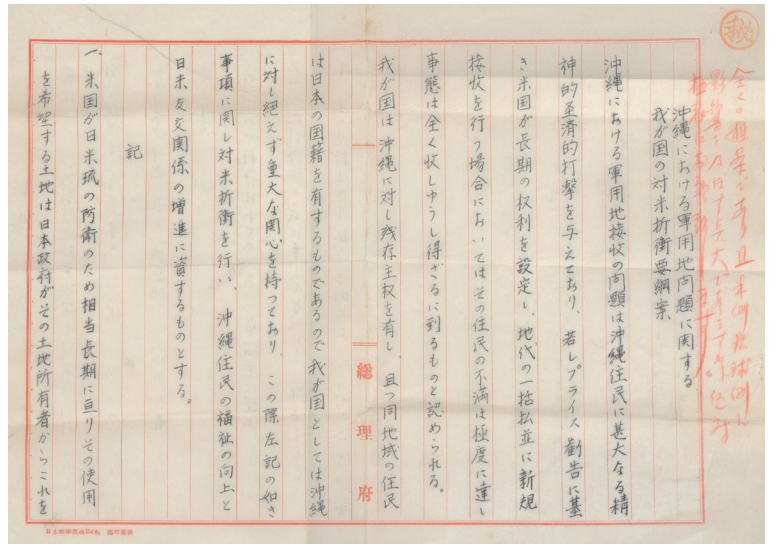 秘
沖縄における軍用地問題に関する
我が国の対米折衝要綱案
沖縄における軍用地接收の問題は沖縄住民に甚大なる精
神的経済的打撃を与えており、若しプライス勧告に基
き米国が長期の权利を設定し、地代の一括払並に新規
接收を行う場合においてはその住民の不満は極度に達し
事態は全く收しゅうし得ざるに到るものと認められる。
我が国は沖縄に対し残存主权を有し、且つ同地域の住民
は日本の国籍を有するものであるので我が国としては沖縄
に対し絶えず重大な関心を持つており、この際左記の如き
事項に関し対米折衝を行い、沖縄住民の福祉の向上と
日米友交関係の増進に資するものとする。
記
一、米国が日米琉の防衛のため相当長期に亘りその使用
を希望する土地は日本政府がその土地所有者からこれを
総理府